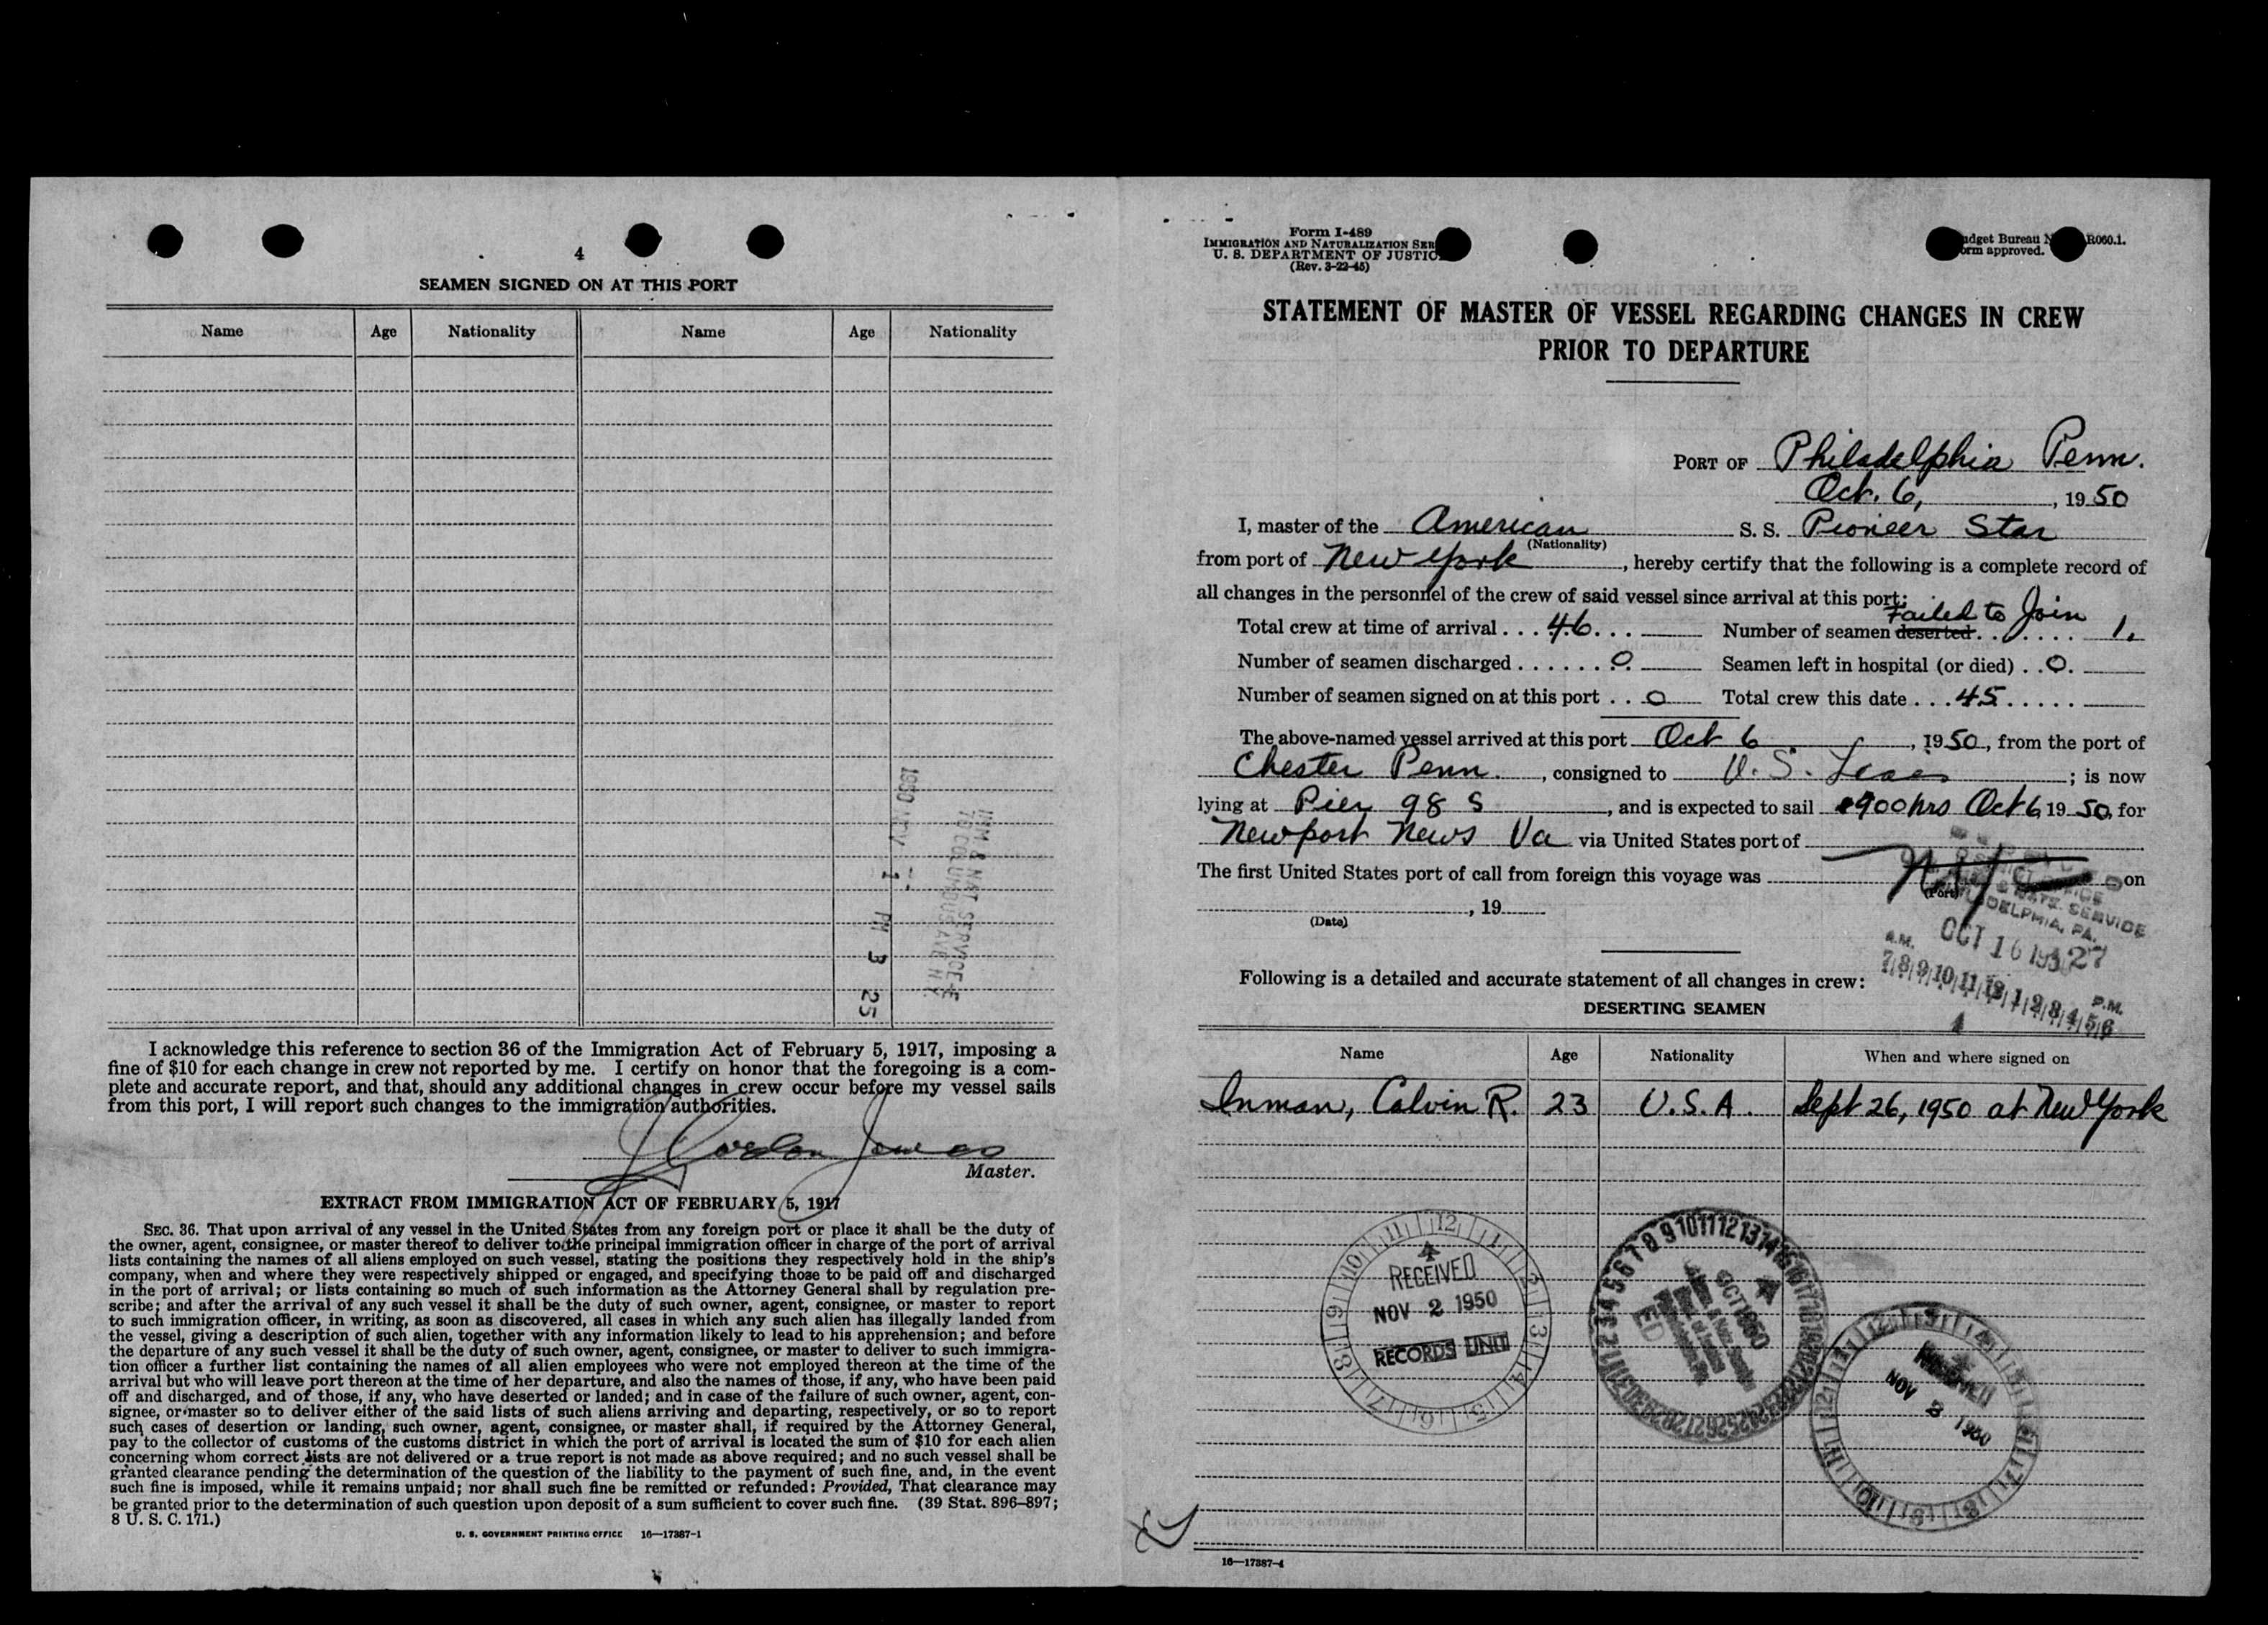 4
SEAMEN SIGNED ON AT THIS PORT
Name Age Nationality Name Age Nationality
1950 NOV 1 PM 3 25
IMM & NAT SERVICE
70 COLUMBUS AVE N.Y.
I acknowledge this reference to section 36 of the Immigration Act of February 5, 1917, imposing a
fine of $10 for each change in crew not reported by me. I certify on honor that the foregoing is a com-
plete and accurate report, and that, should any additional changes in crew occur before my vessel sails
from this port, I will report such changes to the immigration authorities.
Gordon Jones
Master.
EXTRACT FROM IMMIGRATION ACT OF FEBRUARY 5, 1917
SEC. 36. That upon arrival of any vessel in the United States from any foreign port or place it shall be the duty of
the owner, agent, consignee, or master thereof to deliver to the principal immigration officer in charge of the port of arrival
lists containing the names of all aliens employed on such vessel, stating the positions they respectively hold in the ship's
company, when and where they were respectively shipped or engaged, and specifying those to be paid off and discharged
in the port of arrival; or lists containing so much of such information as the Attorney General shall by regulation pre-
scribe; and after the arrival of any such vessel it shall be the duty of such owner, agent, consignee, or master to report
to such immigration officer, in writing, as soon as discovered, all cases in which any such alien has illegally landed from
the vessel, giving a description of such alien, together with any information likely to lead to his apprehension; and before
the departure of any such vessel it shall be the duty of such owner, agent, consignee, or master to deliver to such immigra-
tion officer a further list containing the names of all alien employees who were not employed thereon at the time of the
arrival but who will leave port thereon at the time of her departure, and also the names of those, if any, who have been paid
off and discharged, and of those, if any, who have deserted or landed; and in case of the failure of such owner, agent, con-
signee, or master so to deliver either of the said lists of such aliens arriving and departing, respectively, or so to report
such cases of desertion or landing, such owner, agent, consignee, or master shall, if required by the Attorney General,
pay to the collector of customs of the customs district in which the port of arrival is located the sum of $10 for each alien
concerning whom correct lists are not delivered or a true report is not made as above required; and no such vessel shall be
granted clearance pending the determination of the question of the liability to the payment of such fine, and, in the event
such fine is imposed, while it remains unpaid; nor shall such fine be remitted or refunded: Provided, That clearance may
be granted prior to the determination of such question upon deposit of a sum sufficient to cover such fine. (39 Stat. 896–897;
8 U. S. C. 171.)
U. S. GOVERNMENT PRINTING OFFICE 16—17387-1
Form I-489
IMMIGRATION AND NATURALIZATION SER
U. S. DEPARTMENT OF JUSTIC
(Rev. 3-22-45)
dget Bureau N R060.1.
orm approved.
STATEMENT OF MASTER OF VESSEL REGARDING CHANGES IN CREW
PRIOR TO DEPARTURE
PORT OF Philadelphia Penn.
Oct. 6, , 19 50
I, master of the American S. S. Pioneer Star
(Nationality)
from port of New York , hereby certify that the following is a complete record of
all changes in the personnel of the crew of said vessel since arrival at this port:
Failed to Join
Total crew at time of arrival . . . 46 . . . Number of seamen deserted . . . . . . 1.
Number of seamen discharged . . . . . . 0. Seamen left in hospital (or died) . . 0.
Number of seamen signed on at this port . . 0 Total crew this date . . . 45 . . . . .
The above-named vessel arrived at this port Oct 6 , 19 50, from the port of
Chester Penn. , consigned to U. S. Lines ; is now
lying at Pier 98 S , and is expected to sail 1900 hrs Oct 6 19 50, for
Newport News Va via United States port of
The first United States port of call from foreign this voyage was N.Y. on
(Port)
, 19
(Date)
SERVICE
PHILADELPHIA, PA.
OCT 16 1950
27
A.M. P.M.
7|8|9|10|11|12|1|2|3|4|5|6
Following is a detailed and accurate statement of all changes in crew:
DESERTING SEAMEN
Name Age Nationality When and where signed on
Inman, Calvin R. 23 U.S.A. Sept 26, 1950 at New York
RECEIVED
NOV 2 1950
RECORDS UNIT
OCT 1950
NOV 3 1950
16—17387-4